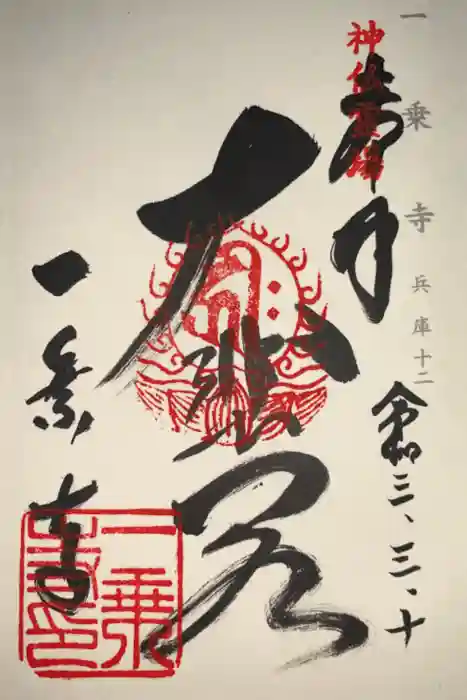 一乗寺 兵庫十二
神仏霊場
奉拝
令和三、三、十
大悲閣
一乗寺
一乗寺印